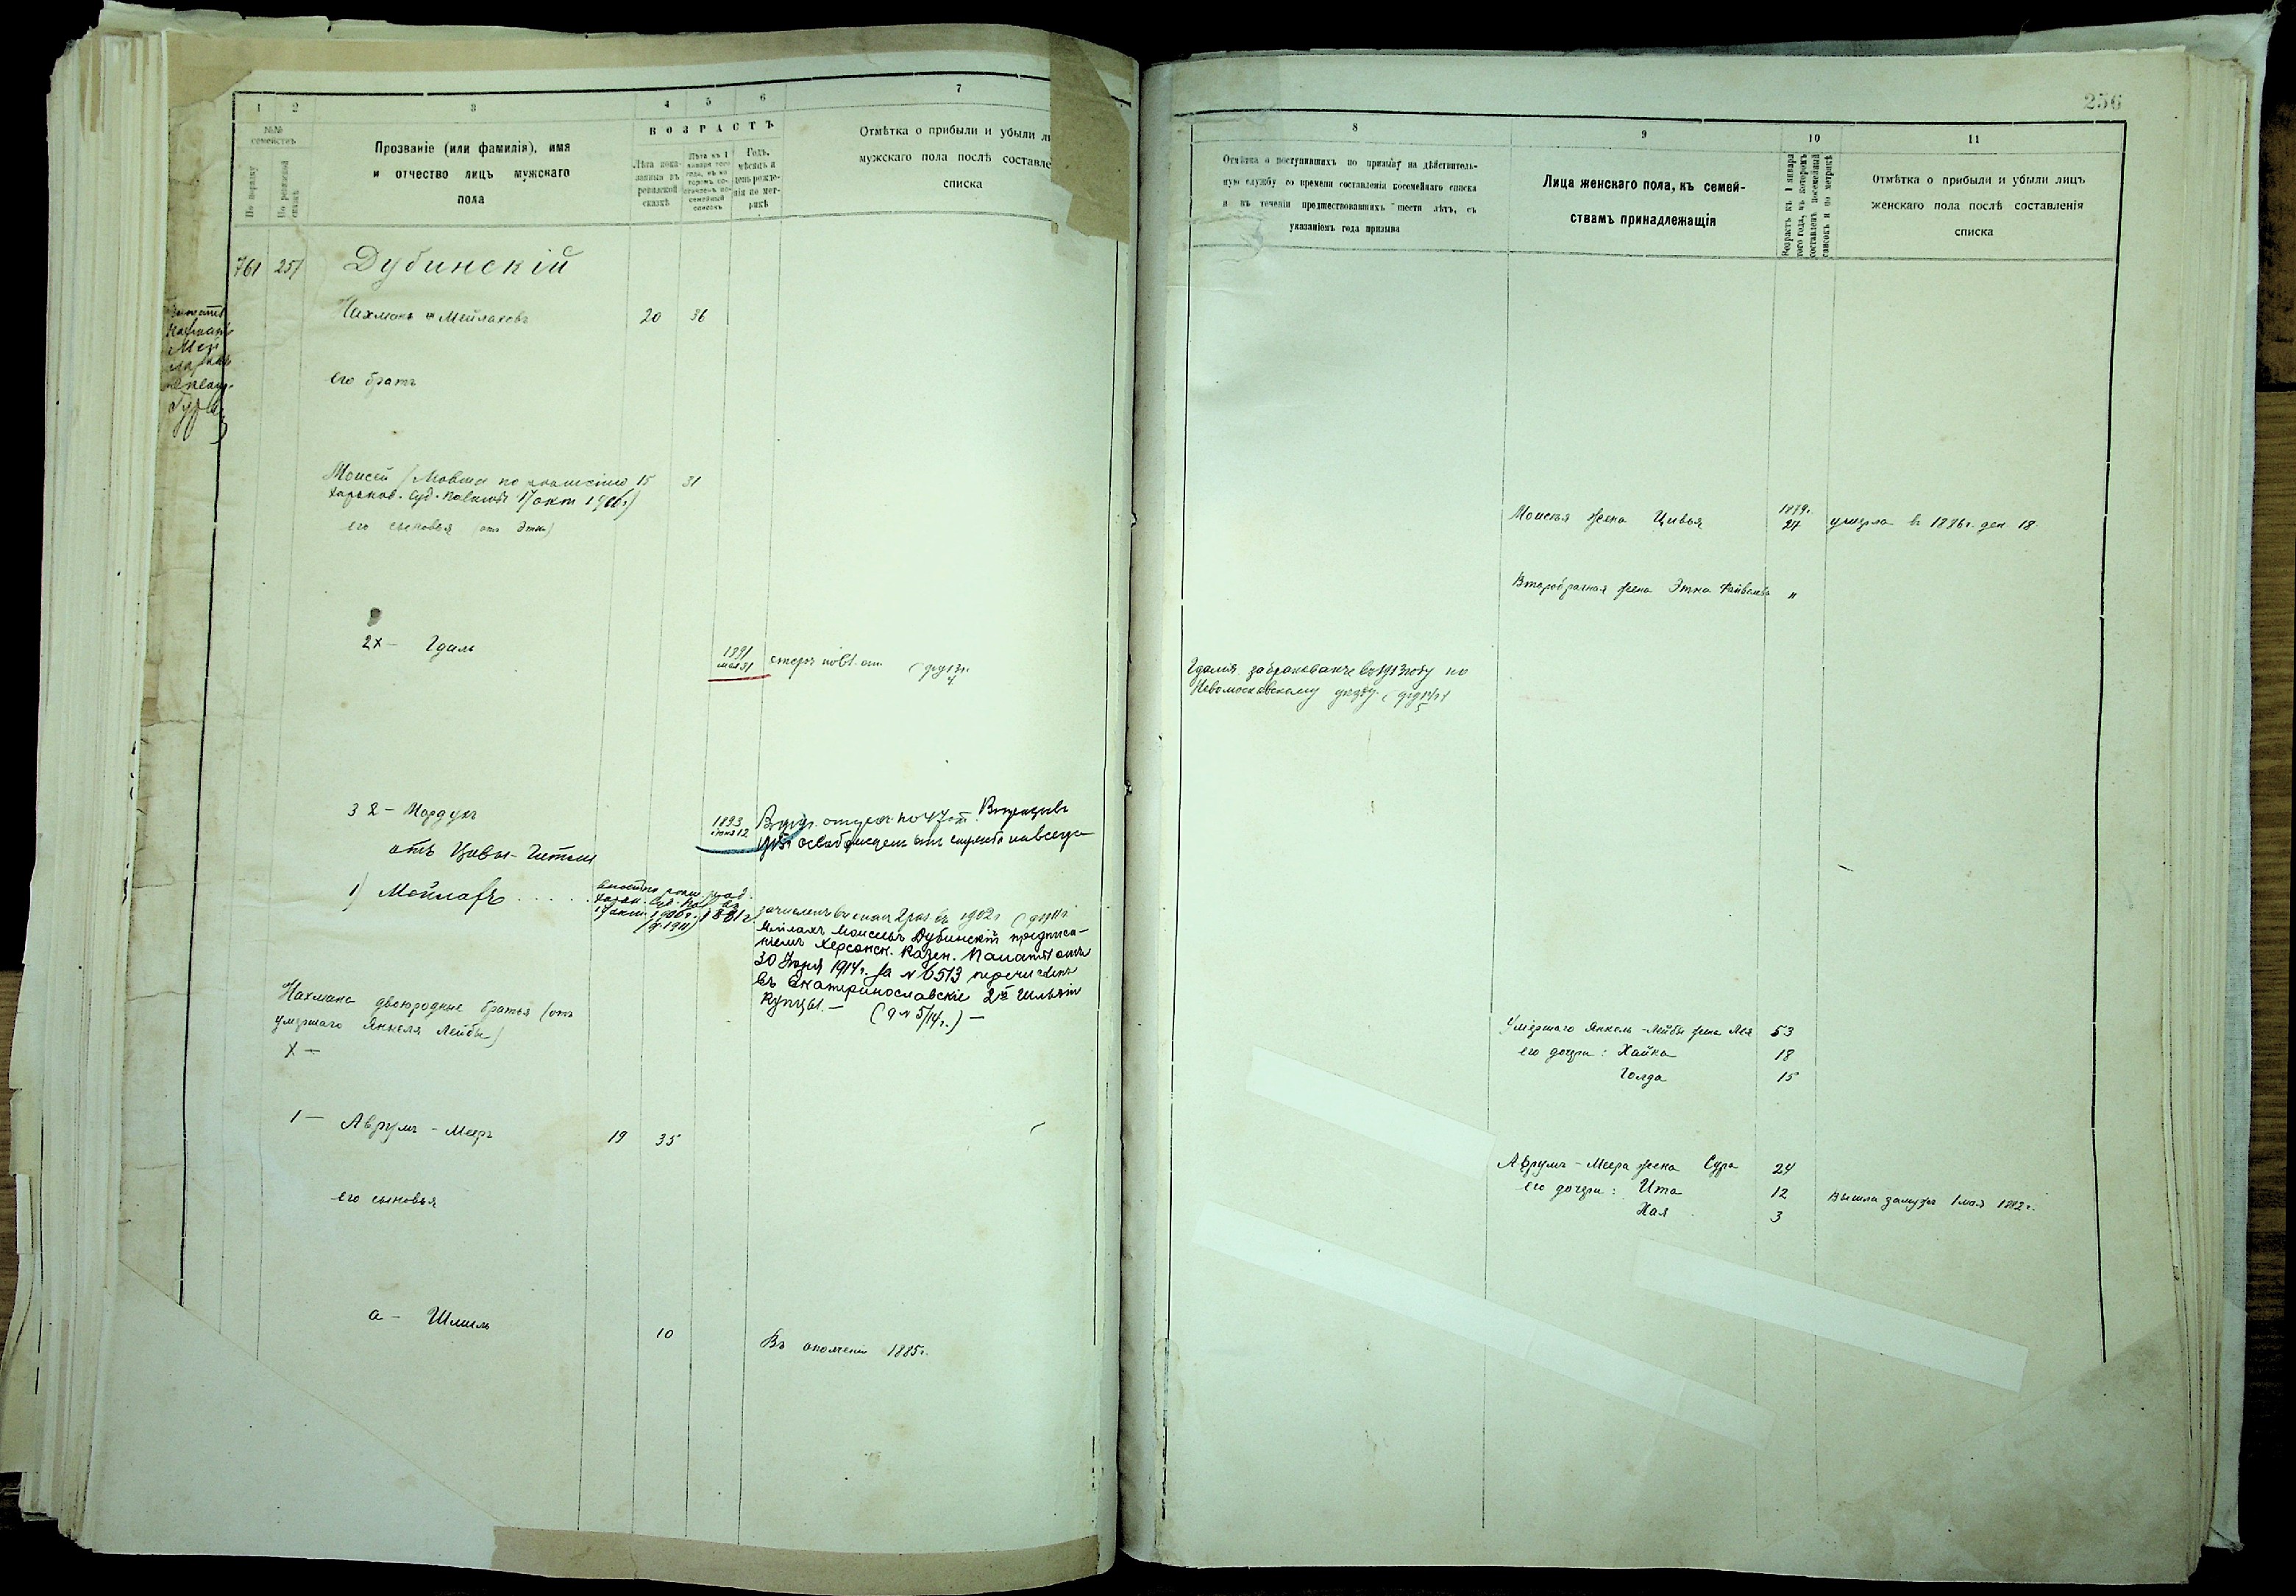 1 2 3 4 5 6 7
№№ семействъ
По порядку
По ревизской сказкѣ
Прозваніе (или фамилія), имя
и отчество лицъ мужскаго
пола
ВОЗРАСТЪ
Лѣта пока-
занныя въ
ревизской
сказкѣ
Лѣта къ 1
января того
года, въ ко-
торомъ со-
ставленъ по-
семейный
списокъ
Годъ,
мѣсяцъ и
день рожде-
нія по мет-
рикѣ
Отмѣтка о прибыли и убыли
мужскаго пола послѣ
списка
761 257 Дубинскій
Нахманъ Мейлаховъ 20 36
его братъ
Моисей (Мовша по рѣшенію 15 31
Харьков. Суд. Палаты 17 окт 1906г.)
его сыновья (отъ Этки)
2х - Гдаль 1891 мая 31
3 2 - Мордухъ 1893 іюня 12
освобожденъ отъ службы навсегда
отъ Цивьи-
1) Мейлахъ
17 окт. 1906г. 1881г.
зачисленъ въ 1902г
Мейлахъ Моисеевъ Дубинскій предписа-
ніемъ Херсонск. Казен. Палаты отъ
30 Іюня 1914г. за № 6513 перечисленъ
въ Екатеринославскіе 2й Гильдіи
Купцы. - (д № 5/14г.) -
Нахмана двоюродные братья (отъ
умершаго Янкеля Лейбы)
х -
1 - Аврумъ-Мееръ 19 35
его сыновья
а - Шмиль 10 Въ ополченіи 1885г.
256
8 9 10 11
Отмѣтка о поступившихъ по призыву на дѣйствитель-
ную службу со времени составленія посемейнаго списка
и въ теченіи предшествовавшихъ шести лѣтъ, съ
указаніемъ года призыва
Лица женскаго пола, къ семей-
ствамъ принадлежащія
Возрастъ къ 1 января
того года, въ которомъ
составленъ посемейный
списокъ и по метрикѣ
Отмѣтка о прибыли и убыли лицъ
женскаго пола послѣ составленія
списка
Моисея жена Цивья 1879г. 27 умерла въ 1886г. дек 18
Второбрачная жена Этка "
Гдалия забракованъ въ 1913 году по
Новомосковскому уѣзду
Умершаго Янкель-Лейбы жена Лея 53
его дочери: Хайка 18
Голда 15
Аврумъ-Меера жена Сура 24
его дочери: Ита 12 Вышла замужъ 1 мая 1882г.
Хая 3